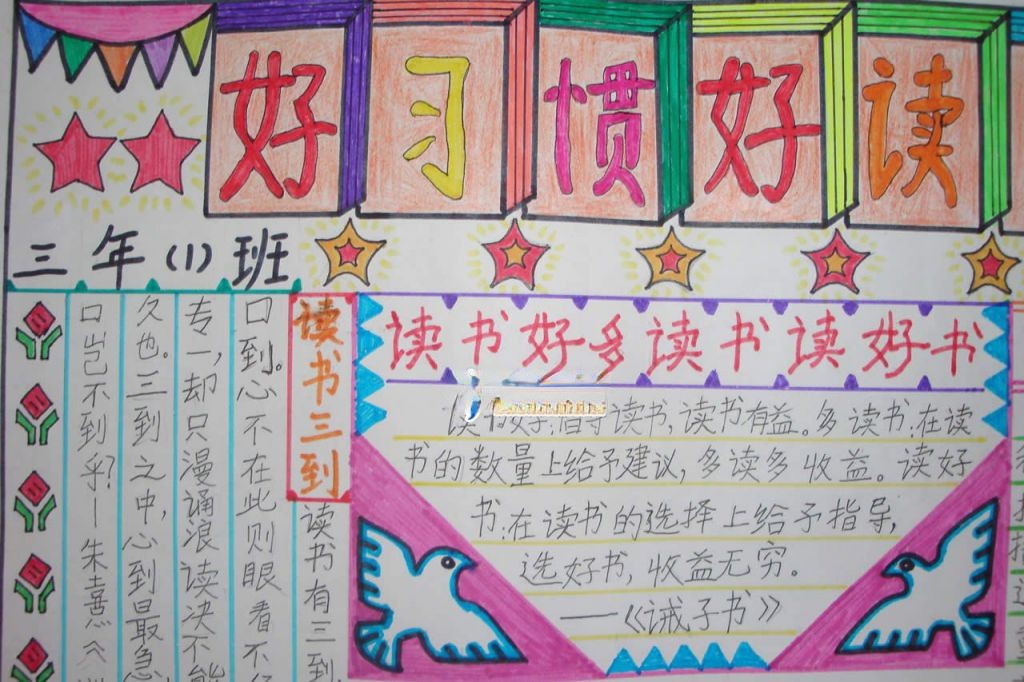 好习惯好读
三年(1)班
读书三到
读书有三到,
口到。心不在此则眼看不
专一,却只漫诵浪读决不能
久也。三到之中,心到最急
口岂不到乎?—朱熹《
读书好多读书读好书
读书好:指导读书,读书有益。多读书:在读
书的数量上给予建议,多读多收益。读好
书:在读书的选择上给予指导,
选好书,收益无穷。
——《诫子书》